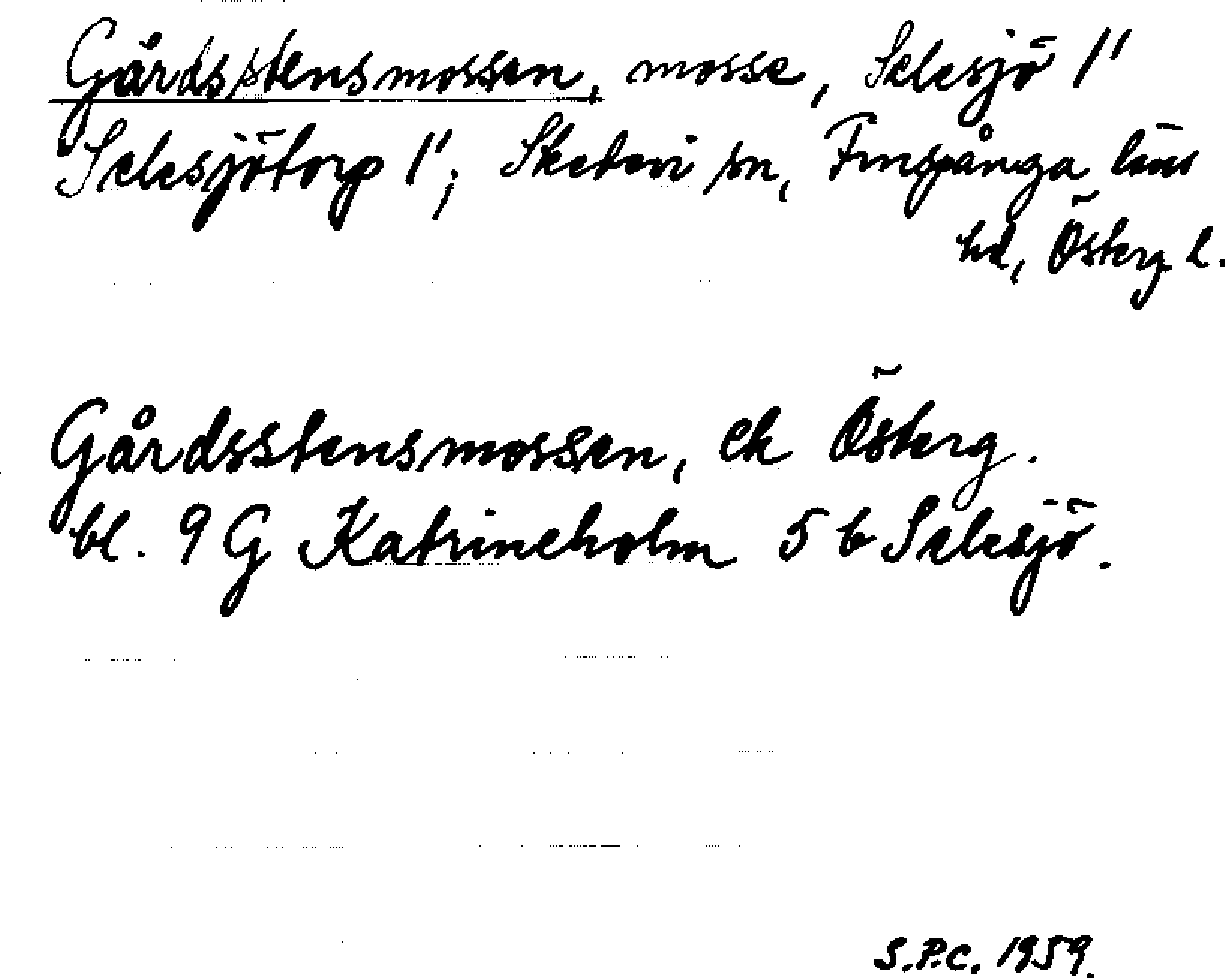 Gårdsstensmossen, mosse, Selesjö 1'
Selesjötorp 1'; Skedevi sn, Finspånga läns
hd, Österg l.
Gårdsstensmossen, ek Österg.
bl. 9 G Katrineholm 5 b Selesjö.
S.P.C. 1959.